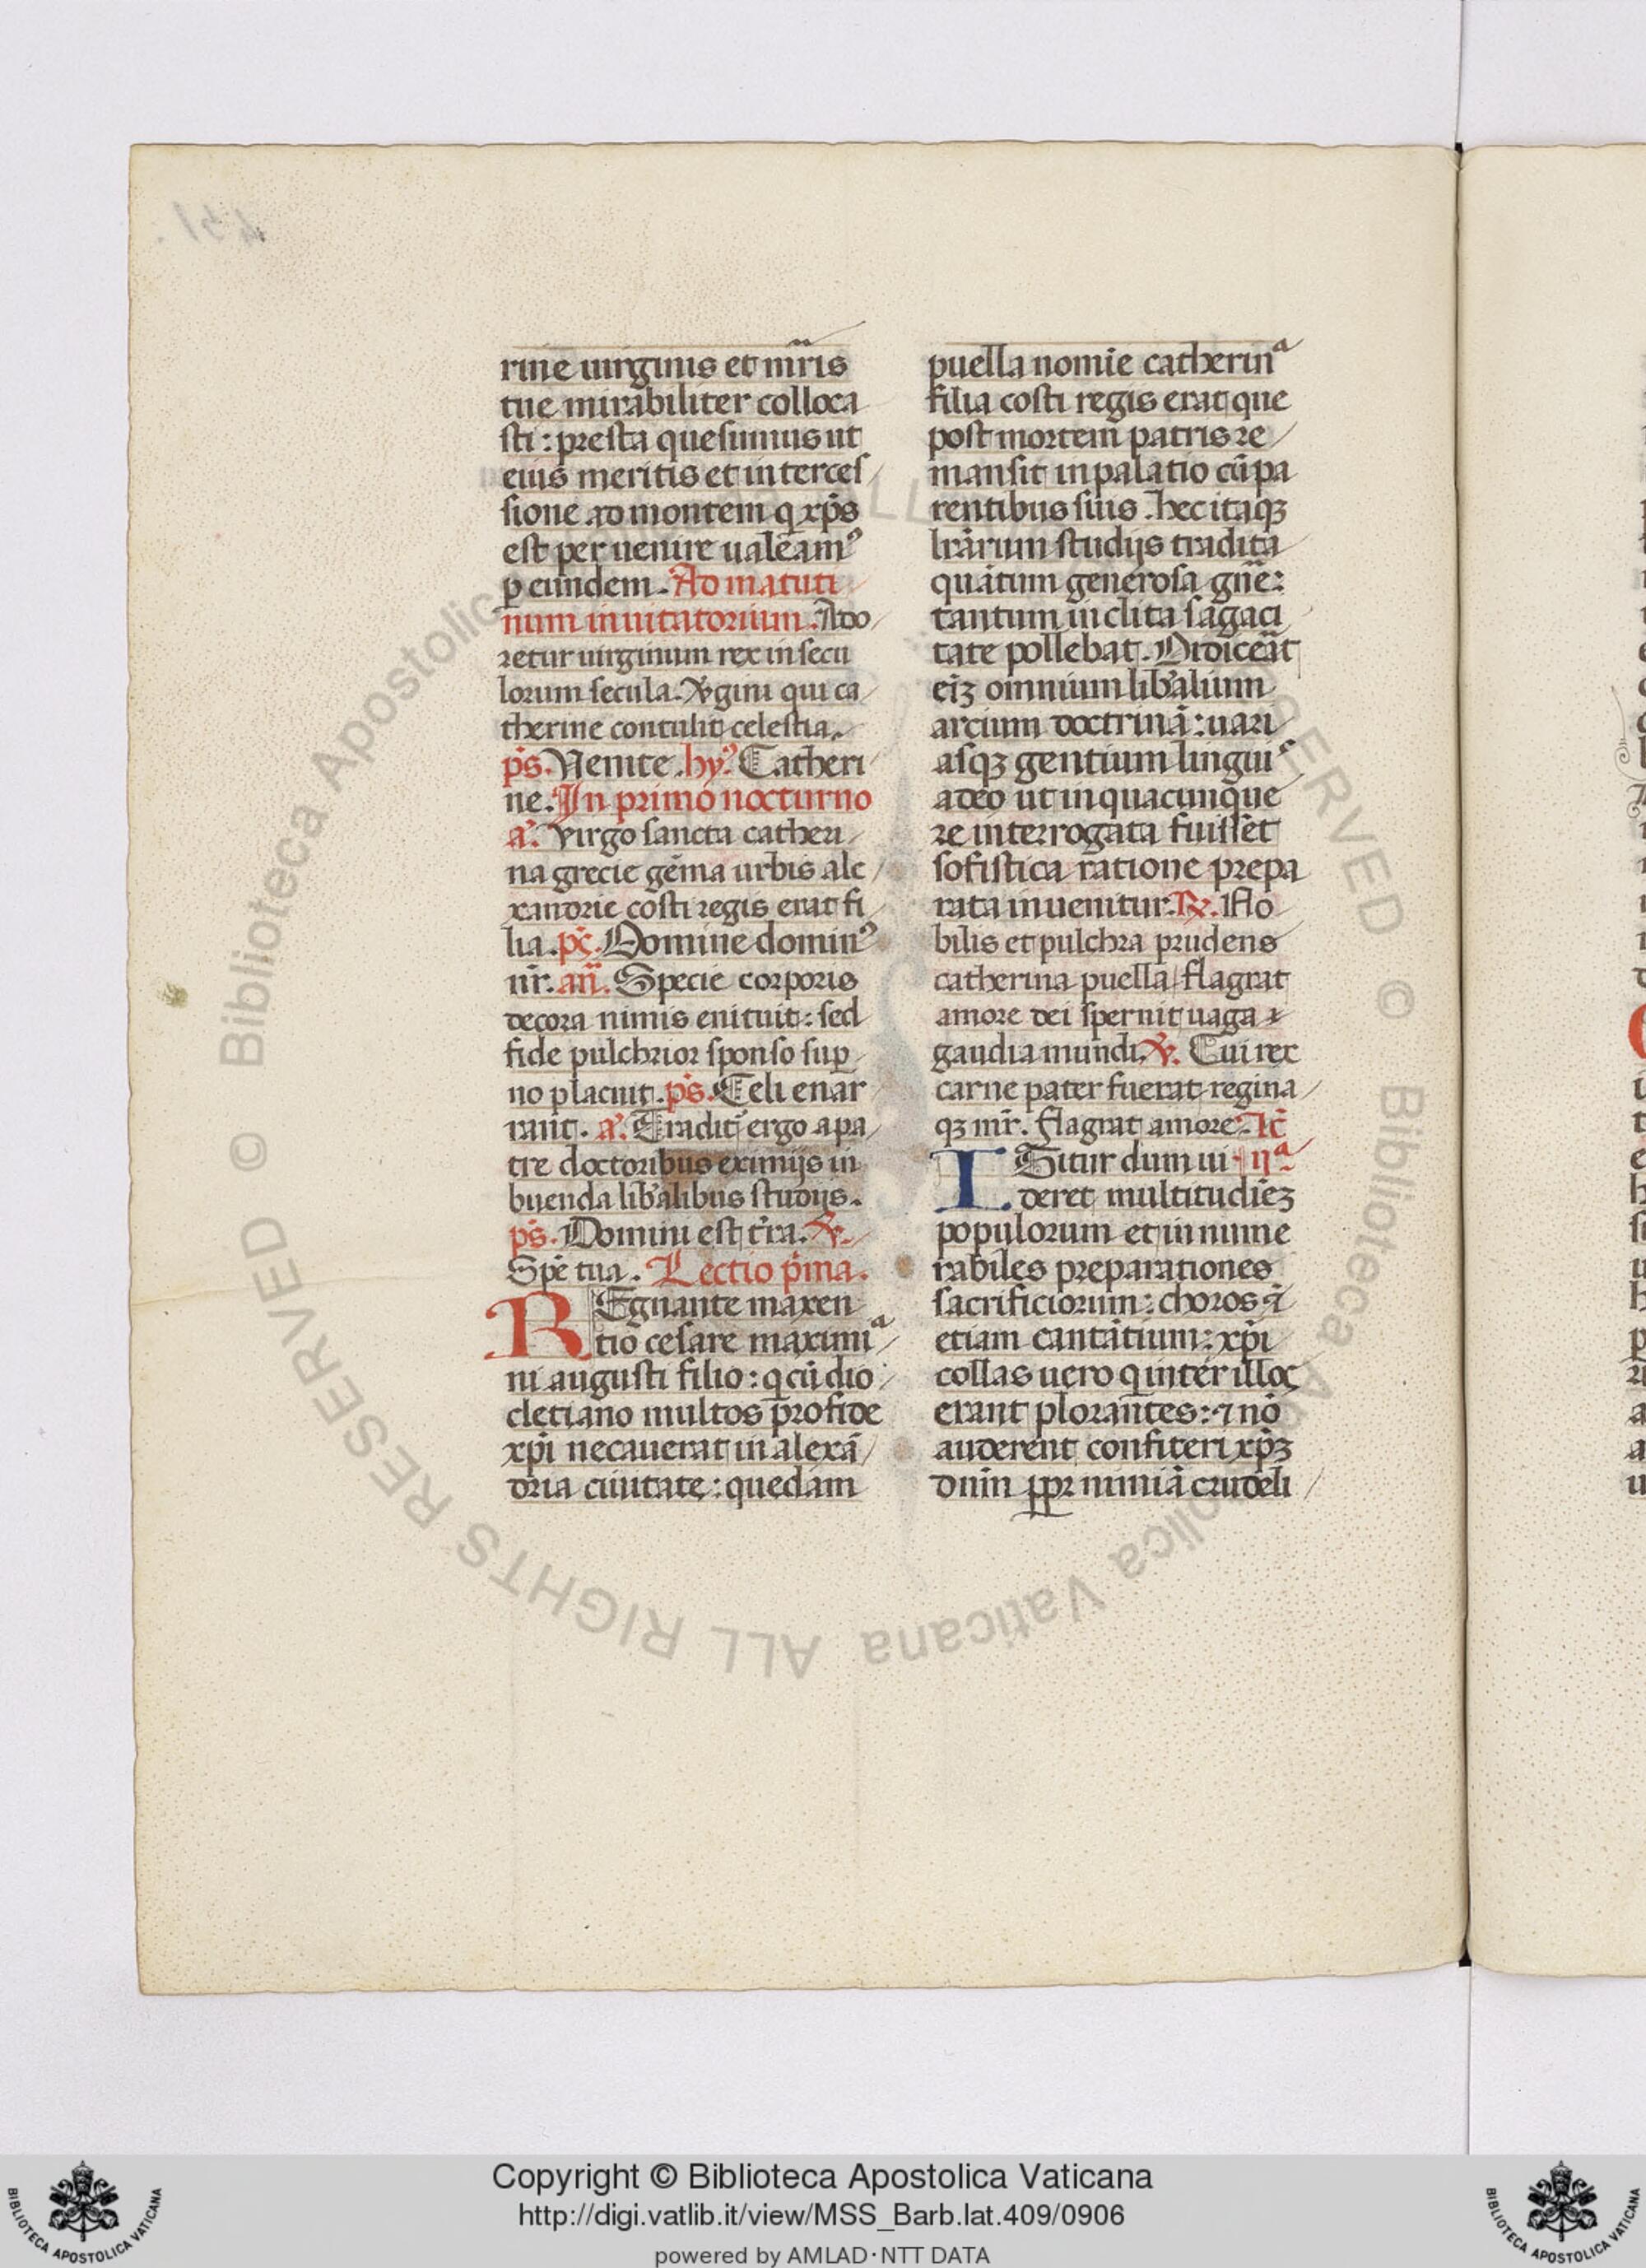 rine uirginis et mr̃is
tue mirabiliter colloca
sti : presta quesumus ut
eius meritis et interces
sione ad montem q xp̃s
est per uenire ualeamꝰ
ꝑ eundem. Ad matuti
num inuitatorium. Ado
retur uirginum rex in secu
lorum secula. Vʼgini qui ca
therine contulit celestia.
ps̃. Venite. hyꝰ. Catheri
ne. In primo nocturno
aʼ. Virgo sancta catheri
na grecie gẽma urbis ale
xandrie costi regis erat fi
lia. ps̃. Domine dominꝰ
nr̃. añ. Specie corporis
decora nimis enituit : sed
fide pulchrior sponso suꝑ
no placuit. ps̃. Celi enar
rant. aʼ. Traditʼ ergo a pa
tre doctoribus eximijs in
buenda libʼalibus studijs.
ps̃. Domini est tʼra. ℣.
Spẽ tua. Lectio pʼma.
REgnante maxen
tio cesare maximiᵃ
ni augusti filio : q cũ dio
cletiano multos pro fide
xp̃i necauerat in alexã
dria ciuitate : quedam
puella nomĩe catherinᵃ
filia costi regis erat que
post mortem patris re
mansit in palatio cũ pa
rentibus suis. hec itaqꝫ
lrãrum studijs tradita
quãtum generosa gñe :
tantum inclita sagaci
tate pollebat. Ordiceãt
eiꝫ omnium libʼalium
arcium doctrinã : uari
asqꝫ gentium linguiˢ
adeo ut in quacunque
re interrogata fuisset
sofistica ratione prepa
rata inuenitur. ℟. No
bilis et pulchra prudens
catherina puella flagrat
amore dei spernit uaga ⁊
gaudia mundi. ℣. Cui rex
carne pater fuerat regina
qꝫ mr̃. flagrat amore. lc̃
IGitur dum ui ijᵃ
deret multitudiẽꝫ
populorum et innume
rabiles preparationes
sacrificiorum : choros ⁊
etiam cantãtium : xp̃i
collas uero q inter illoc
erant plorantes : ⁊ nõ
auderent confiteri xp̃ꝫ
dnm̃ ꝓpr nimiã crudeli
Copyright © Biblioteca Apostolica Vaticana
http://digi.vatlib.it/view/MSS_Barb.lat.409/0906
powered by AMLAD·NTT DATA
BIBLIOTECA APOSTOLICA VATICANA
BIBLIOTECA APOSTOLICA VATICANA
© Biblioteca Apostolica Vaticana ALL RIGHTS RESERVED